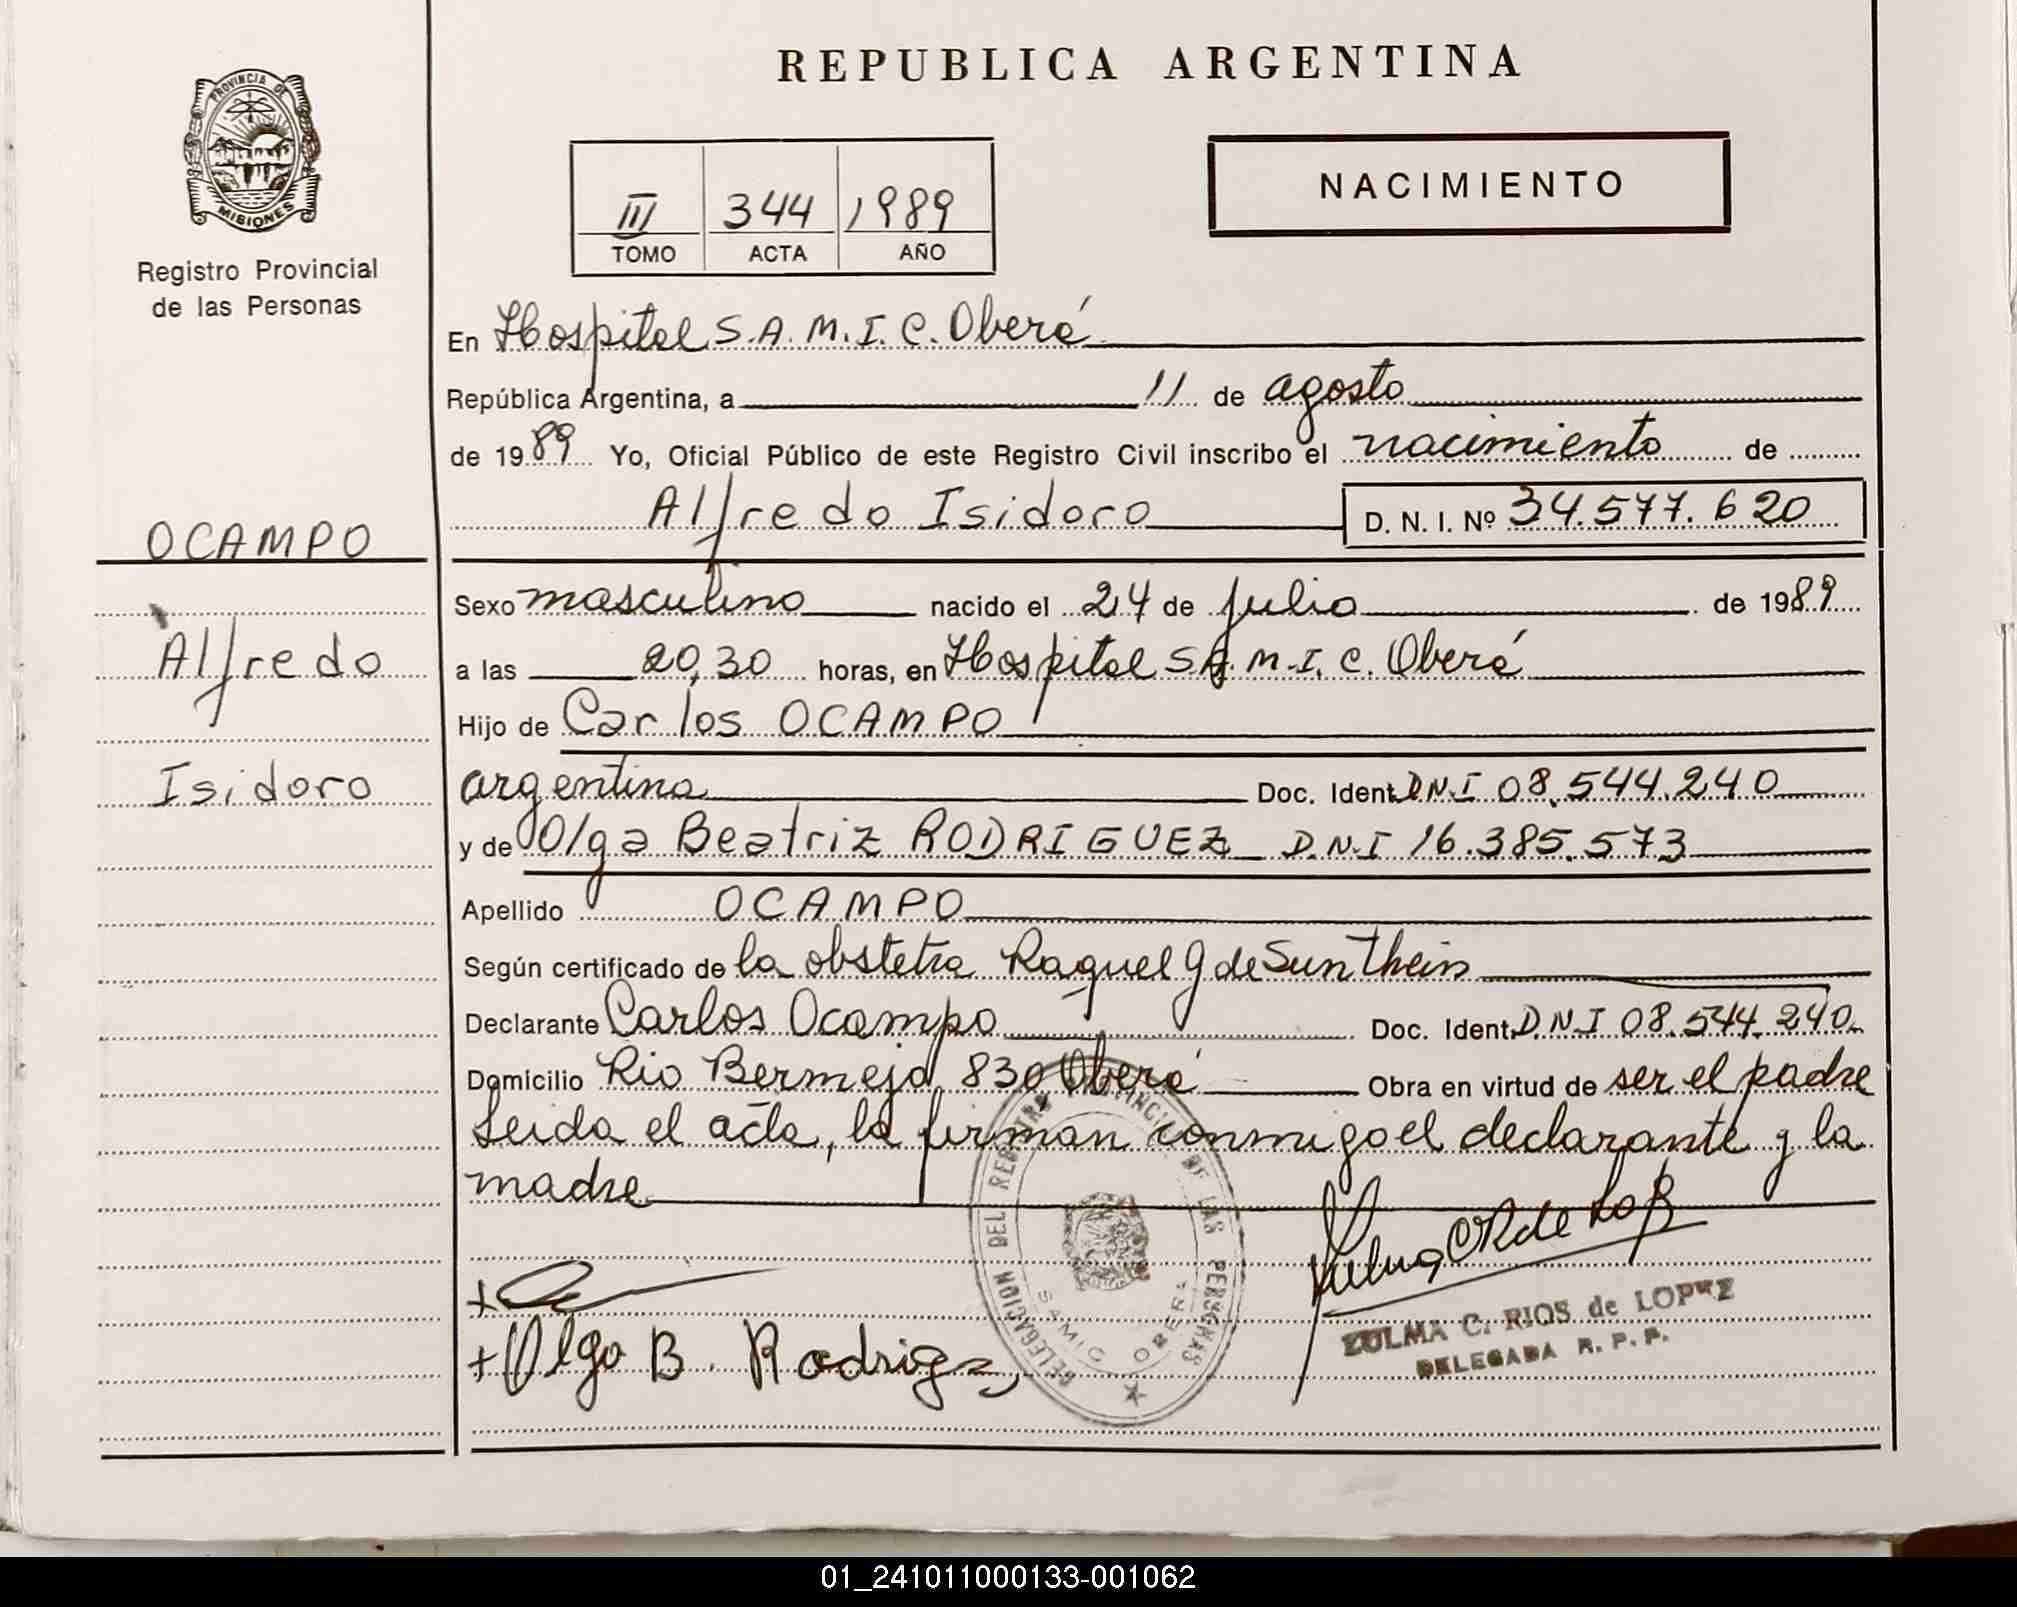 REPUBLICA ARGENTINA
PROVINCIA DE
MISIONES
Registro Provincial
de las Personas
III 344 1989
TOMO ACTA AÑO
NACIMIENTO
En Hospital S.A.M.I.C. Oberá
República Argentina, a 11 de agosto
de 1989 Yo, Oficial Público de este Registro Civil inscribo el nacimiento de
Alfredo Isidoro D. N. I. Nº 34.577.620
OCAMPO
Alfredo
Isidoro
Sexo masculino nacido el 24 de julio de 1989
a las 20,30 horas, en Hospital S.A.M.I.C. Oberá
Hijo de Carlos OCAMPO
argentina Doc. Ident. D.N.I 08.544.240
y de Olga Beatriz RODRIGUEZ D.N.I 16.385.573
Apellido OCAMPO
Según certificado de la obstetra Raquel G de Sunthein
Declarante Carlos Ocampo Doc. Ident. D.N.I 08.544.240
Domicilio Rio Bermejo 830 Oberá Obra en virtud de ser el padre
Leida el acta, la firman conmigo el declarante y la
madre
+Olga B. Rodrigz
DELEGACION DEL REGISTRO PROVINCIAL DE LAS PERSONAS
SAMIC OBERA
ZULMA C. RIOS de LOPEZ
DELEGADA R. P. P.
01_241011000133-001062